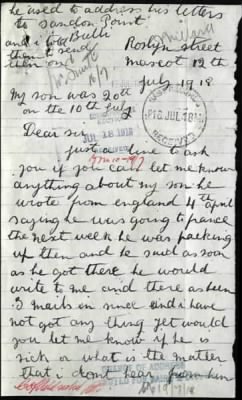 he used to address his letters
to Sandon Point
Bulli
and i told
them to send
them on
Roslyn street
Mascot 12th
July 1918
My son was 20th
on the 10th July
JUL 18 1918
Dear sir
just a line to ask
you if you can let me know
anything about my son he
wrote from england 4th april
saying he was going to france
the next week he was packing
up then and he said as soon
as he got there he would
write to me and there as been
3 mails in since and i have
not got any thing yet would
you let me know if he is
sick or what is the matter
that i dont hear from him